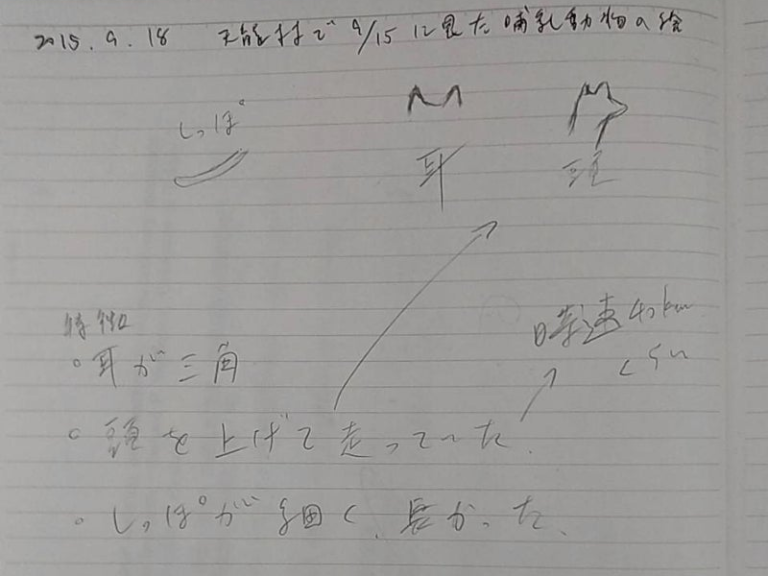 2015.9.18 天龍村で 9/15 に見た哺乳動物の絵
しっぽ
耳
頭
特徴
。耳が三角
時速40km
くらい
。頭を上げて走っていた.
。しっぽが細く、長かった、